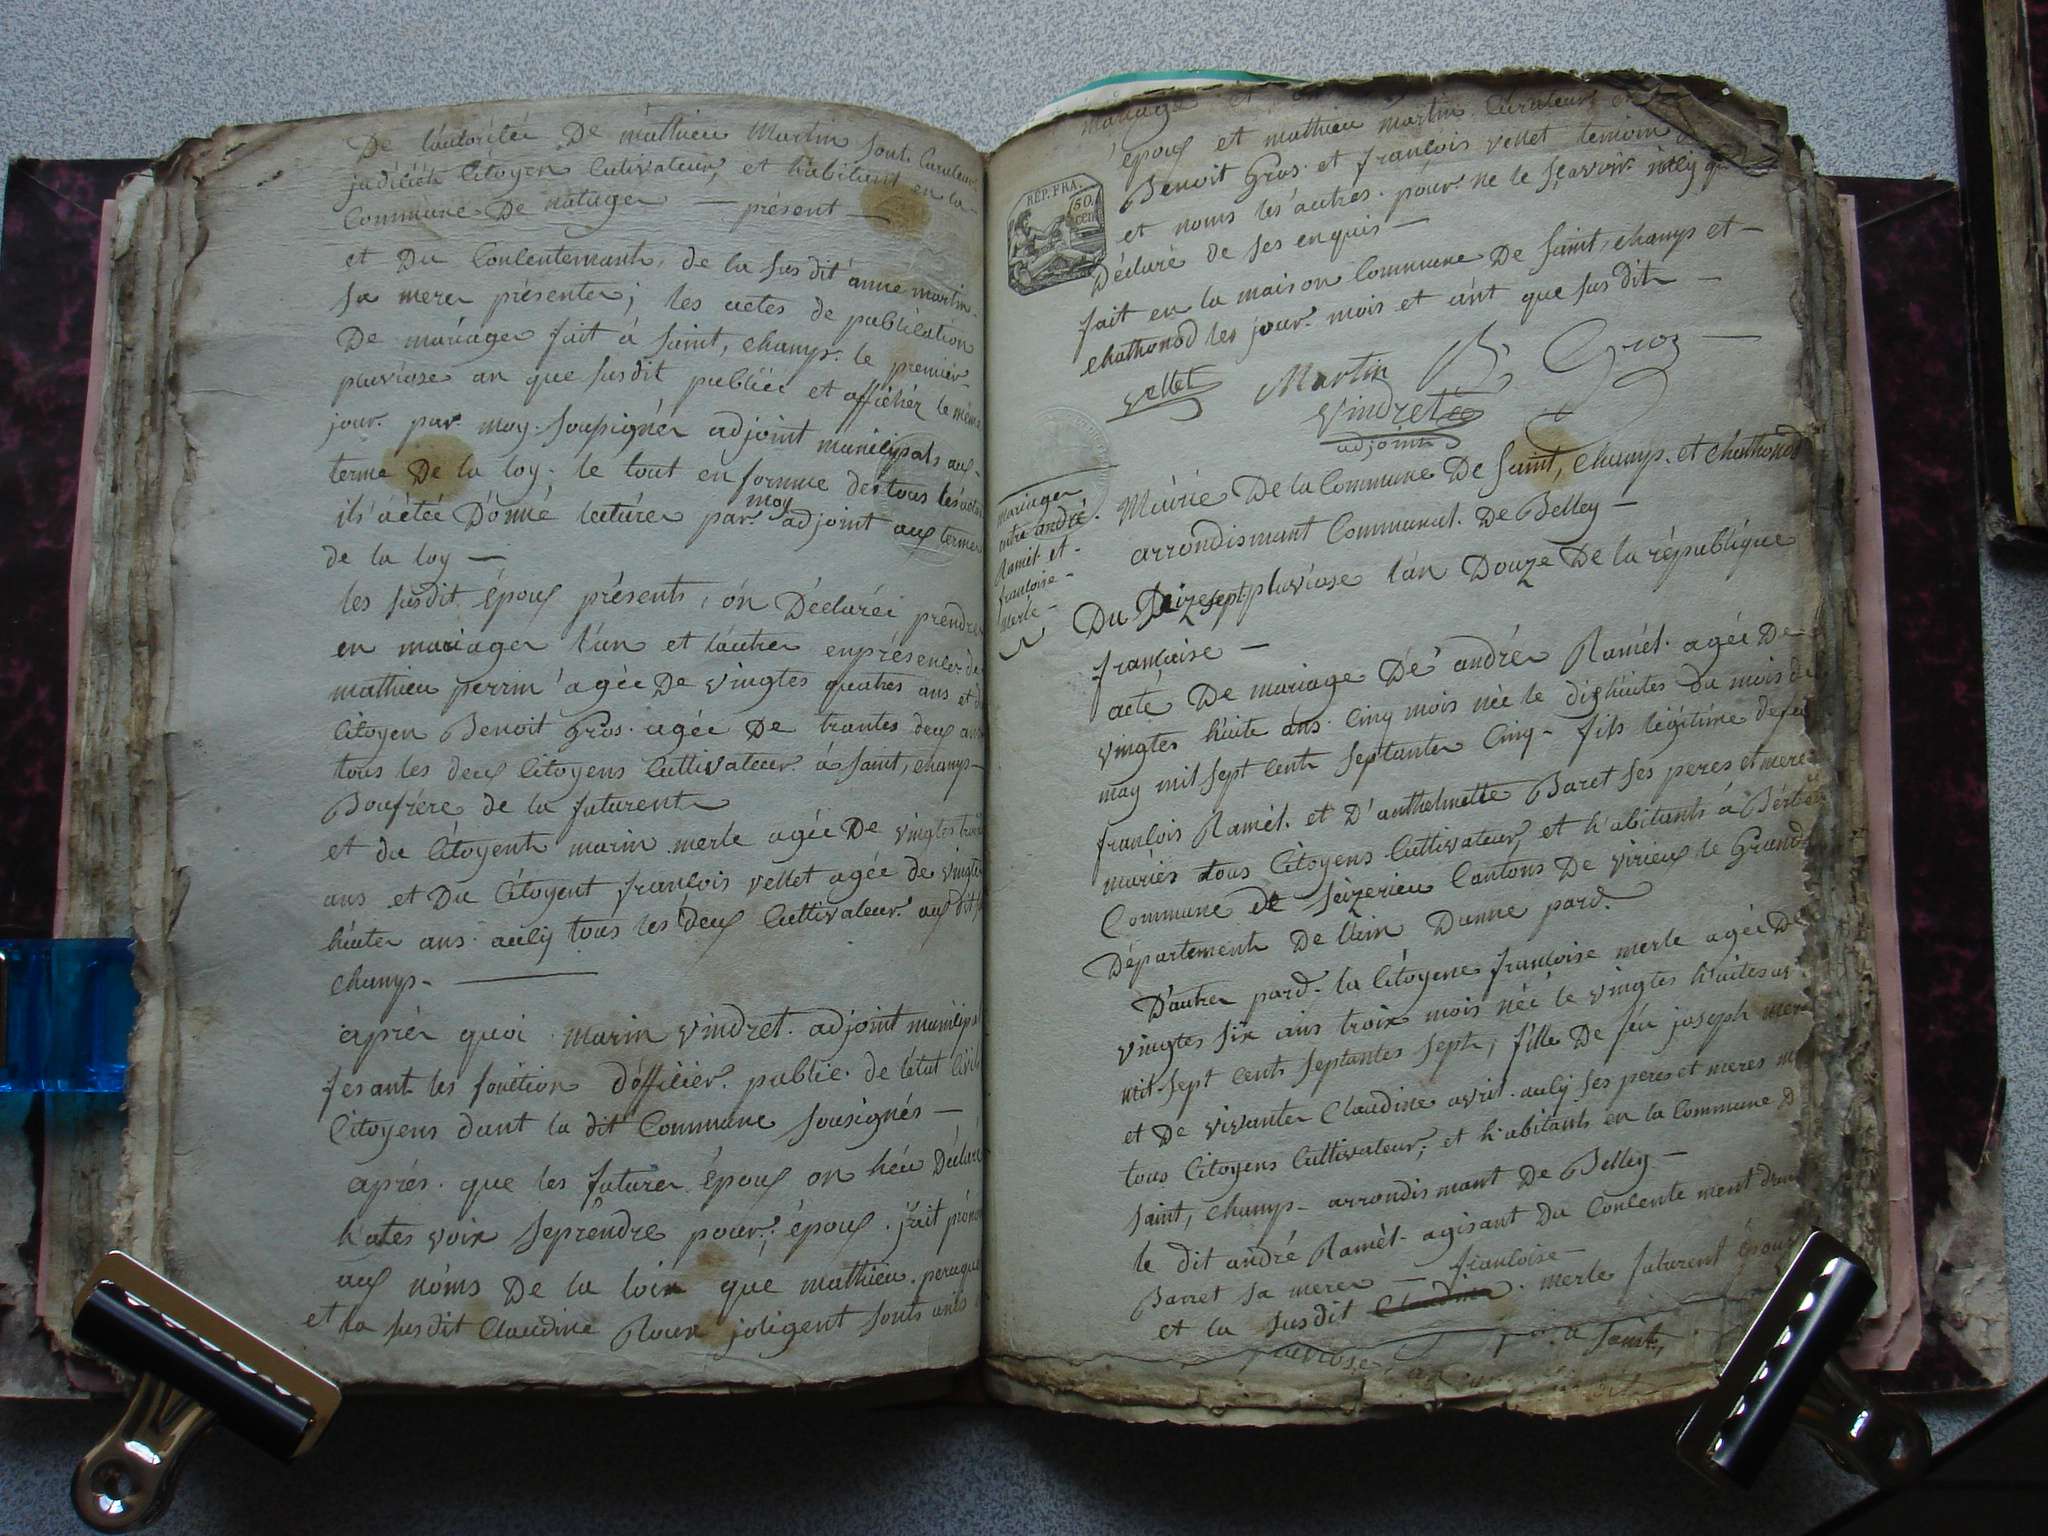 De l'autoritée De mathieu Martin sont Curateur
judiciéh Citoyen Cutivateur, et habitant en la
Commune De natages — présent —
et Du Concentemanh, de la sus dit anne martin
sa merer présenter; les actes de publication
De mariager fait à saint, champs le premier
pluviose an que susdit publiée et afficher le même
jour. par moy. soussignér adjoint municipals aux
terme De la loy; le tout en formme des tous les actes
ils a étée Donné lecturer par moy adjoint aux termes
de la loy —
les susdit Époux présents, on Déclaréé prendre
en mariager l'un et l'autrer enprésencer de
mathieu perrin agée De vingtes quatres ans et du
Citoyen Benoit Gros. agée De trantes deux ans
tous les deux Citoyens Cultivateur à saint, champs
Boufrére de la futurent
et du Citoyenth marin merle agée De vingtes trois
ans et Du Citoyent françois vellet agée de vingtes
huiter ans aucy tous les deux Cultivateur aux dit
champs. —
aprér quoi marin vindret. adjoint municipal
fesant les fonction d'officier. public. de l'état Civile
Citoyens dant la dit Commune sousignés —
aprés. que les futurer Époux on héu Déclaré
hates voix seprendre pour; époux. j'ait prénon
aux noms De la loix que mathieu. peruque
et la susdit Claudine Roux joligent sonts unis
mariage et
époux et mathieu martin Curateur
Benoit Gros. et françois vellet temoin
et nomis les autres. pour ne le sçavoir. incy que
Déclaré de ses enquis —
fait en la maison Commune De saint, champs et —
chathonod les jour. mois et ant que susdith —
vellet Martin B. Groz
vindret
adjoint
REP. FRA.
50.
cen
mariager
entre andré.
Ramét et
francoise
merle
Mairie De la Commune De saint, champs. et chathonod
arrondismant Communal. De Belley —
Du Deizesept pluviose l'an Douze De la république
francaise —
acte De mariage De andrér Ramél. agée De
vingtes huite ans Cinq mois née le dixhuites du mois de
may mil sept cenh septanter Cinq. fils légitime defeu
françois Ramél. et D'anthelmette Baret ses peres et meres
mariés tous Citoyens Cultivateur, et h'abitants á
Commune de seizerieu Cantons De virieux le Grand
Département De l'ain Dunne pard.
D'autrer pard. la Citoyene francoise merle agée De
vingtes six ans troix mois née le vingtes huites
mil sept cents septantes septh, fille De feu joseph merle
et De vivanter Claudine avril. aucy ses peres et meres
tous Citoyens Cultivateur; et h'abitants en la Commune D
saint, champs. arrondismant De Belley —
le dit andré Ramél. agisant Du Concente ment
Barret sa merer —
et la susdit Claudine francoise — merle futurent épous
pluviose a saint,